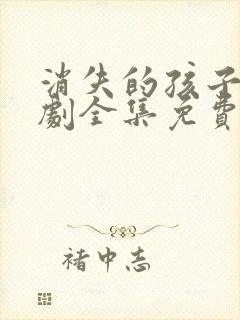 消失的孩子
劇全集免費
褚中志